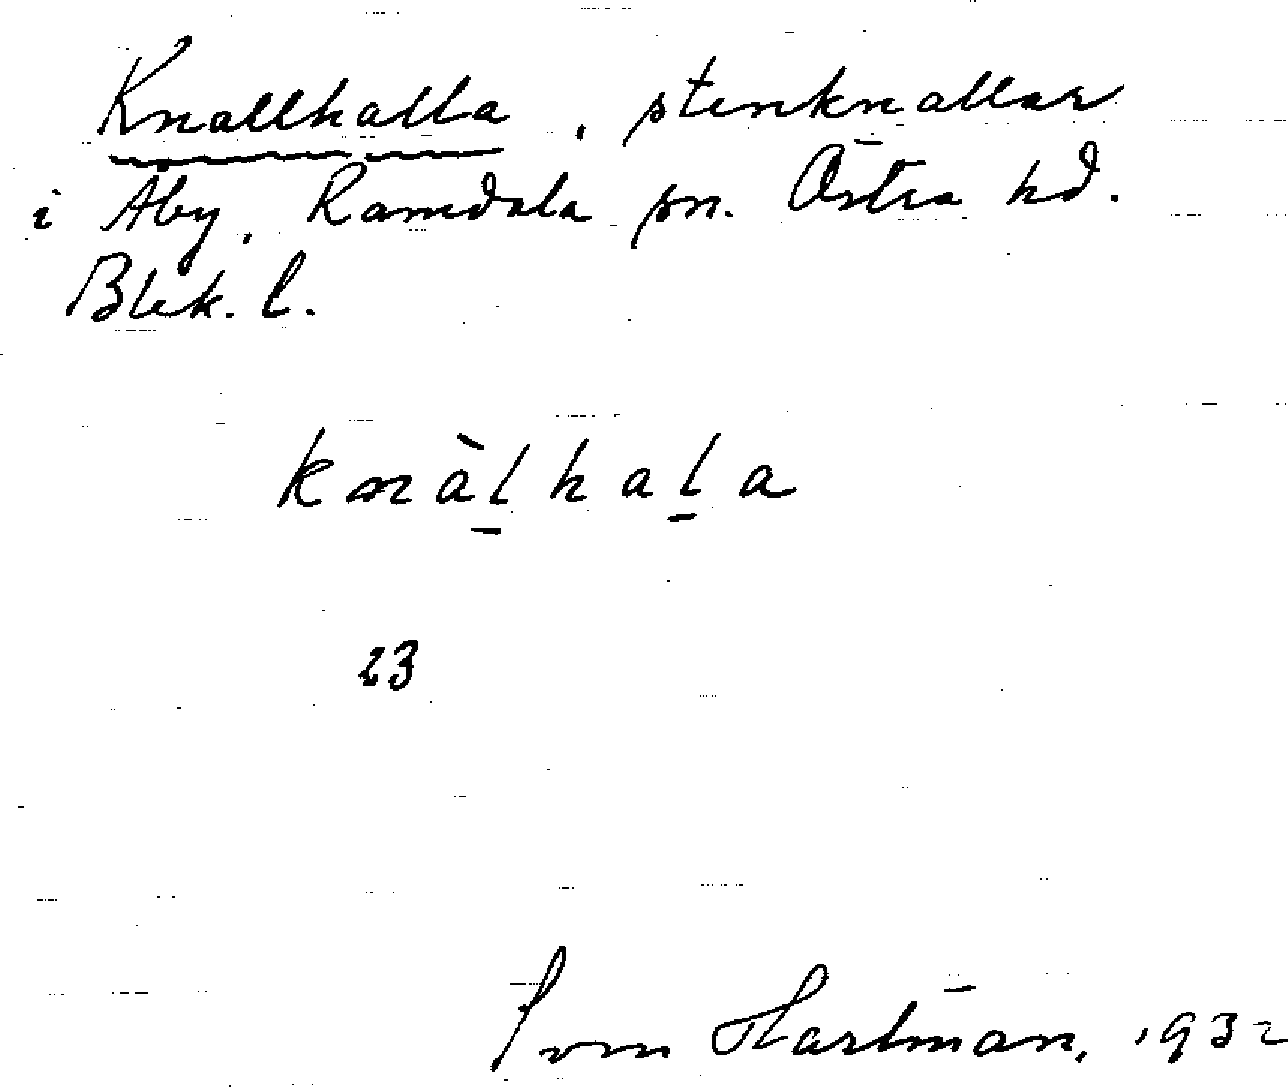 Knallhalla, stenknallar
i Åby, Ramdala sn. Östra hd.
Blek. l.
knàl̲hal̲a
23
Ivon Hartman, 1932